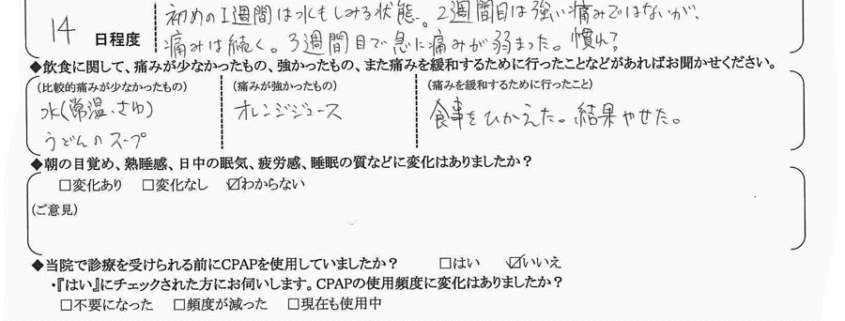 14 日程度
初めの1週間は水もしみる状態。2週間目は強い痛みではないが、
痛みは続く。3週間目で急に痛みが弱まった。慣れ?
◆飲食に関して、痛みが少なかったもの、強かったもの、また痛みを緩和するために行ったことなどがあればお聞かせください。
(比較的痛みが少なかったもの) (痛みが強かったもの) (痛みを緩和するために行ったこと)
水(常温、さゆ) オレンジジュース 食事をひかえた。結果やせた。
うどんのスープ
◆朝の目覚め、熟睡感、日中の眠気、疲労感、睡眠の質などに変化はありましたか?
□変化あり □変化なし ☑わからない
(ご意見)
◆当院で診療を受けられる前にCPAPを使用していましたか? □はい ☑いいえ
・『はい』にチェックされた方にお伺いします。CPAPの使用頻度に変化はありましたか?
□不要になった □頻度が減った □現在も使用中